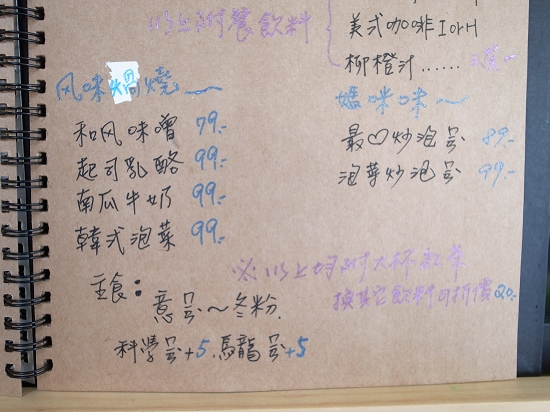 以上附餐飲料
美式咖啡 I or H
柳橙汁......
风味鍋燒~
和风味噌 79.-
起司乳酪 99.-
南瓜牛奶 99.-
韓式泡菜 99.-
主食:
意昙~冬粉.
科學昙+5.馬龍昙+5
媽咪味~
最♡炒泡昙 89.-
泡菜炒泡昙 99.-
※以上均附大杯紅茶
換其它飲料可折價20.-